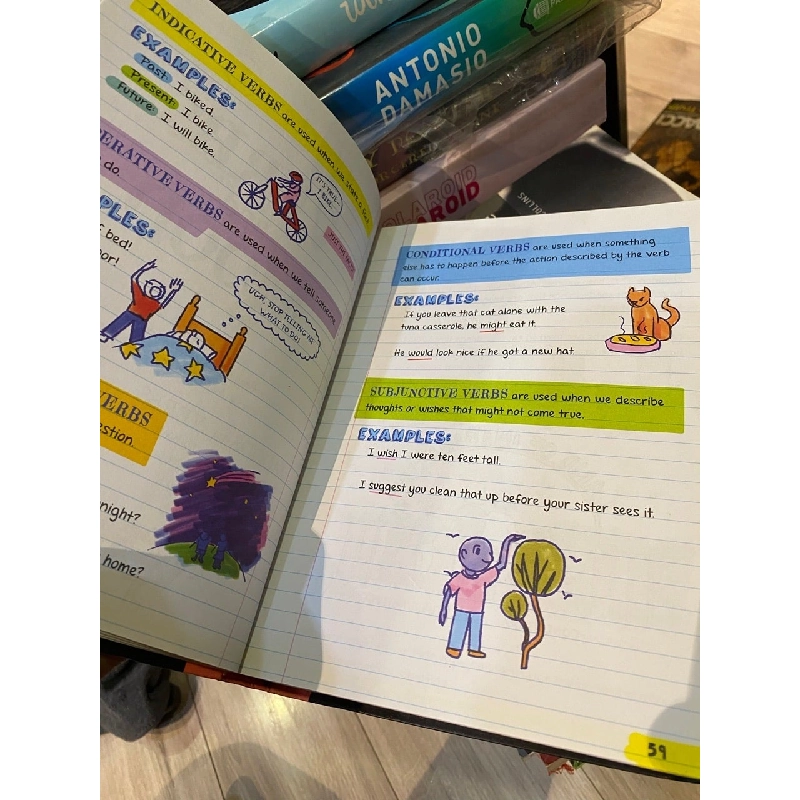 INDICATIVE VERBS are used when we state a
EXAMPLES:
Past: I biked.
Present: I bike.
Future: I will bike.
IT'S TRUE—
I BIKE.
JUST THE FACTS!
ERATIVE VERBS are used when we tell someone
do.
PLES:
f bed!
oor!
UGH! STOP TELLING ME
WHAT TO DO!
VERBS
estion.
night?
home?
ANTONIO
DAMASIO
POLAROID
CONDITIONAL VERBS are used when something
else has to happen before the action described by the verb
can occur.
EXAMPLES:
If you leave that cat alone with the
tuna casserole, he might eat it.
He would look nice if he got a new hat.
SUBJUNCTIVE VERBS are used when we describe
thoughts or wishes that might not come true.
EXAMPLES:
I wish I were ten feet tall.
I suggest you clean that up before your sister sees it.
59